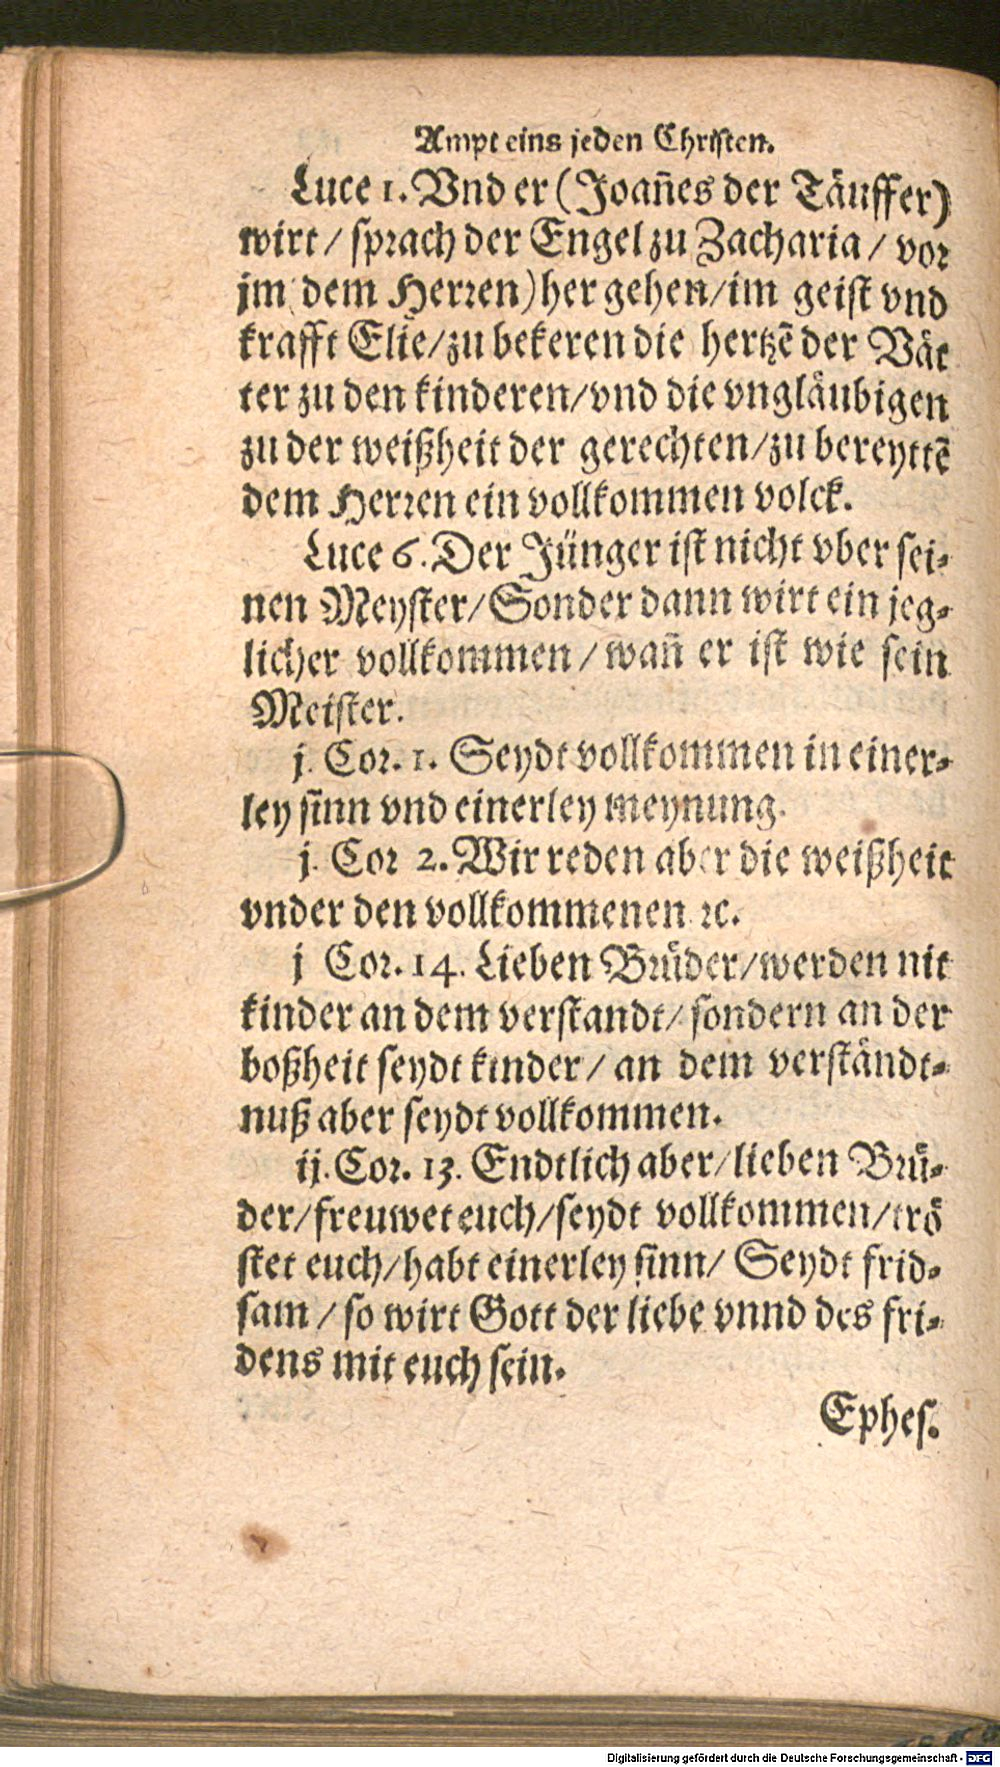 Ampt eins jeden Christen.
Luce 1. Vnd er (Joan̄es der Täuffer)
wirt / sprach der Engel zu Zacharia / vor
jm dem Herren) her gehen/im geist vnd
krafft Elie/zu bekeren die hertzē der Vät
ter zu den kinderen/vnd die vngläubigen
zu der weißheit der gerechten/zu bereyttē
dem Herren ein vollkommen volck.
Luce 6. Der Jünger ist nicht vber sei-
nen Meyster/Sonder dann wirt ein jeg-
licher vollkommen / wan̄ er ist wie sein
Meister.
j. Cor. 1. Seydt vollkommen in einer-
ley sinn vnd einerley meynung.
j. Cor 2. Wir reden aber die weißheit
vnder den vollkommenen ꝛc.
j Cor. 14. Lieben Brüder/werden nit
kinder an dem verstandt/ sondern an der
boßheit seydt kinder / an dem verständt-
nuß aber seydt vollkommen.
ij. Cor. 13. Endtlich aber/lieben Brü-
der/freuwet euch/seydt vollkommen/trö
stet euch/habt einerley sinn/ Seydt frid-
sam / so wirt Gott der liebe vnnd des fri-
dens mit euch sein.
Ephes.
Digitalisierung gefördert durch die Deutsche Forschungsgemeinschaft - DFG